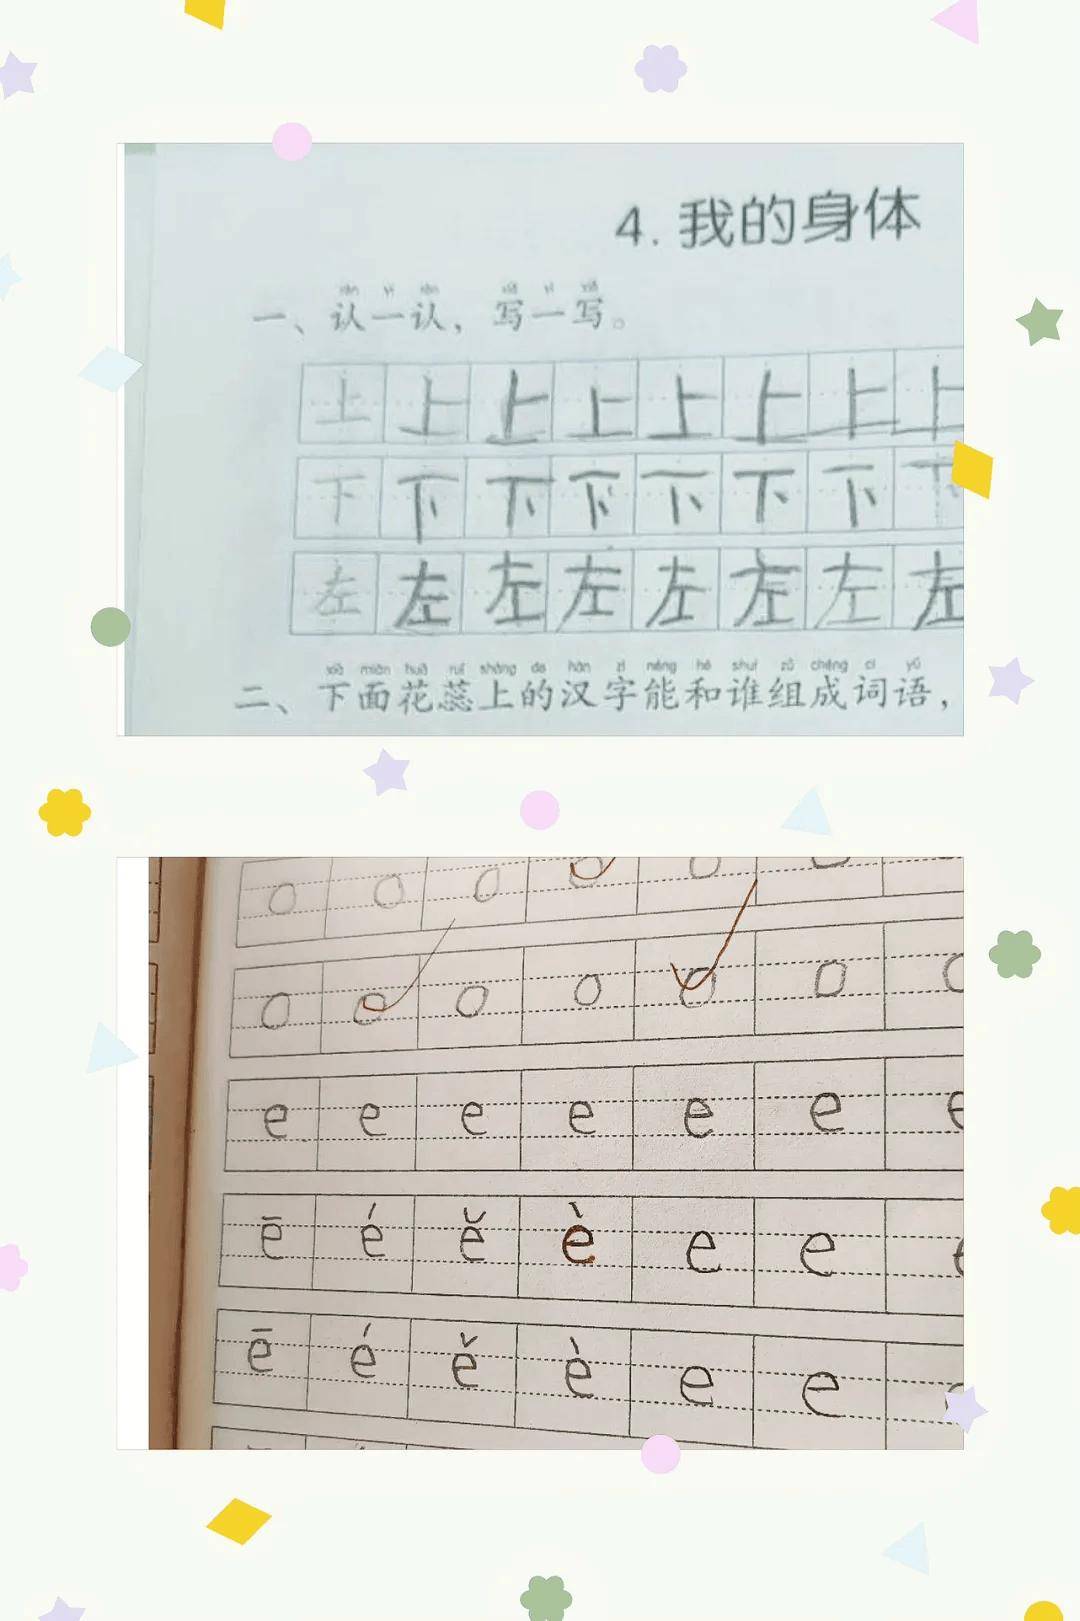 4. 我的身体
rèn yí rèn xiě yì xiě
一、认一认，写一写。
上 上 上 上 上 上 上 上
下 下 下 下 下 下 下 下
左 左 左 左 左 左 左 左
xià miàn huā ruǐ shàng de hàn zì néng hé shuí zǔ chéng cí yǔ
二、下面花蕊上的汉字能和谁组成词语，
o o o o o
o o o o o o
e e e e e e e
ē é ě è e e
ē é ě è e e